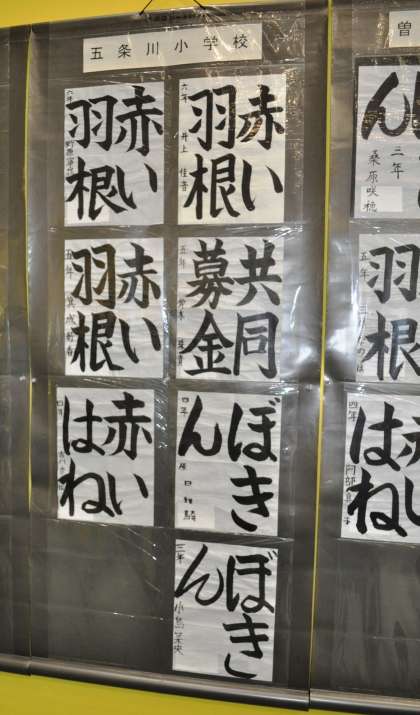 五条川小学校
赤い
羽根
六年 井上佳音
赤い
羽根
六年
共同
募金
五年
赤い
羽根
五年
ぼき
ん
四年
赤い
はね
四年
ぼき
ん
三年 小島
曽
ん
三年 桑原咲穂
根
五年
はね
四年 阿部